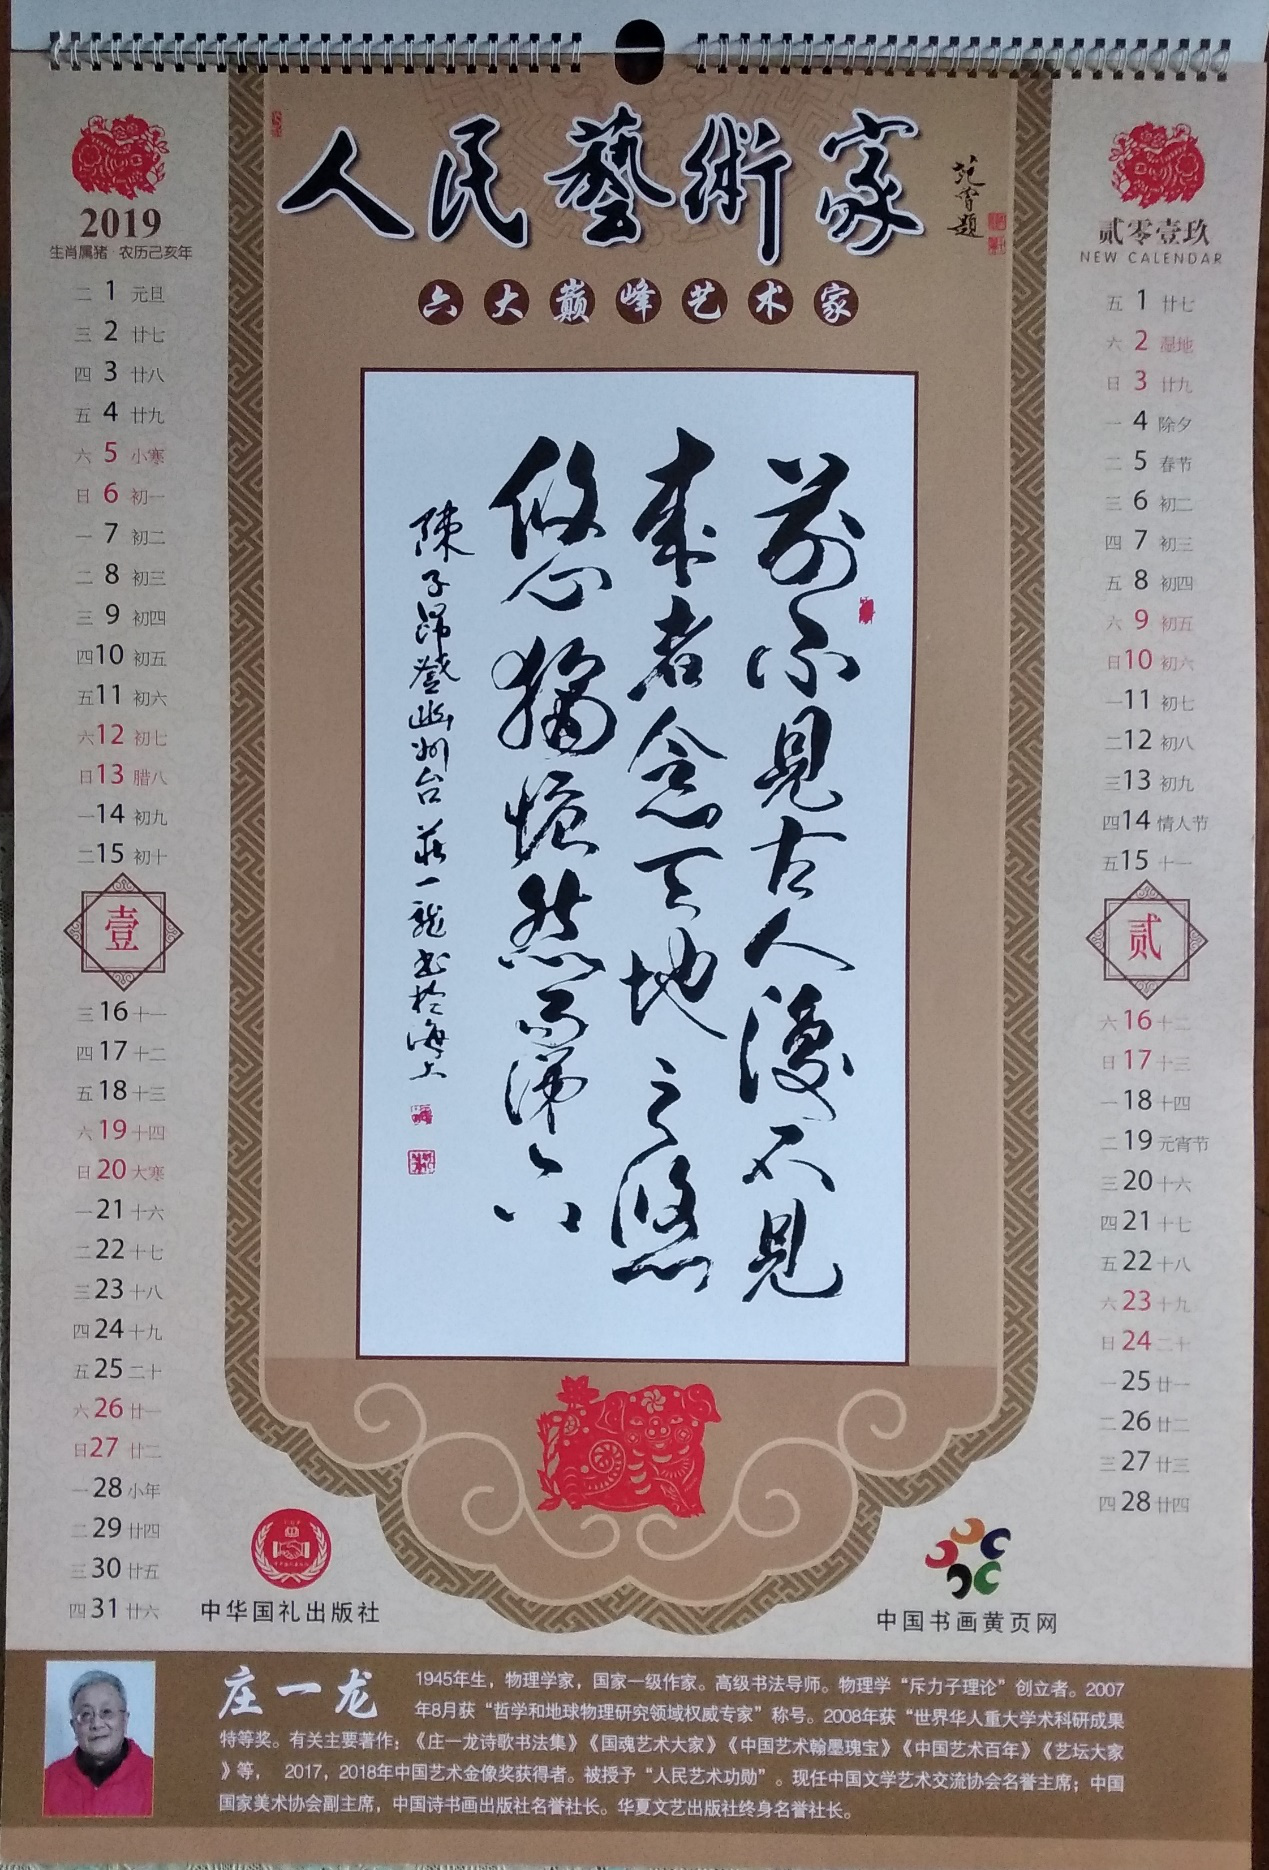 人民藝術家
范曾題
六大巅峰艺术家
2019
生肖属猪 农历己亥年
二 1 元旦
三 2 廿七
四 3 廿八
五 4 廿九
六 5 小寒
日 6 初一
一 7 初二
二 8 初三
三 9 初四
四 10 初五
五 11 初六
六 12 初七
日 13 腊八
一 14 初九
二 15 初十
壹
三 16 十一
四 17 十二
五 18 十三
六 19 十四
日 20 大寒
一 21 十六
二 22 十七
三 23 十八
四 24 十九
五 25 二十
六 26 廿一
日 27 廿二
一 28 小年
二 29 廿四
三 30 廿五
四 31 廿六
前不見古人後不見
來者念天地之悠
悠獨愴然而涕下
陳子昂登幽州台 莊一龍书於海上
贰零壹玖
NEW CALENDAR
五 1 廿七
六 2 湿地
日 3 廿九
一 4 除夕
二 5 春节
三 6 初二
四 7 初三
五 8 初四
六 9 初五
日 10 初六
一 11 初七
二 12 初八
三 13 初九
四 14 情人节
五 15 十一
贰
六 16 十二
日 17 十三
一 18 十四
二 19 元宵节
三 20 十六
四 21 十七
五 22 十八
六 23 十九
日 24 二十
一 25 廿一
二 26 廿二
三 27 廿三
四 28 廿四
中华国礼出版社
中国书画黄页网
庄一龙
1945年生，物理学家，国家一级作家。高级书法导师。物理学“斥力子理论”创立者。2007
年8月获“哲学和地球物理研究领域权威专家”称号。2008年获“世界华人重大学术科研成果
特等奖。有关主要著作：《庄一龙诗歌书法集》《国魂艺术大家》《中国艺术翰墨瑰宝》《中国艺术百年》《艺坛大家
》等， 2017，2018年中国艺术金像奖获得者。被授予“人民艺术功勋”。现任中国文学艺术交流协会名誉主席；中国
国家美术协会副主席，中国诗书画出版社名誉社长。华夏文艺出版社终身名誉社长。